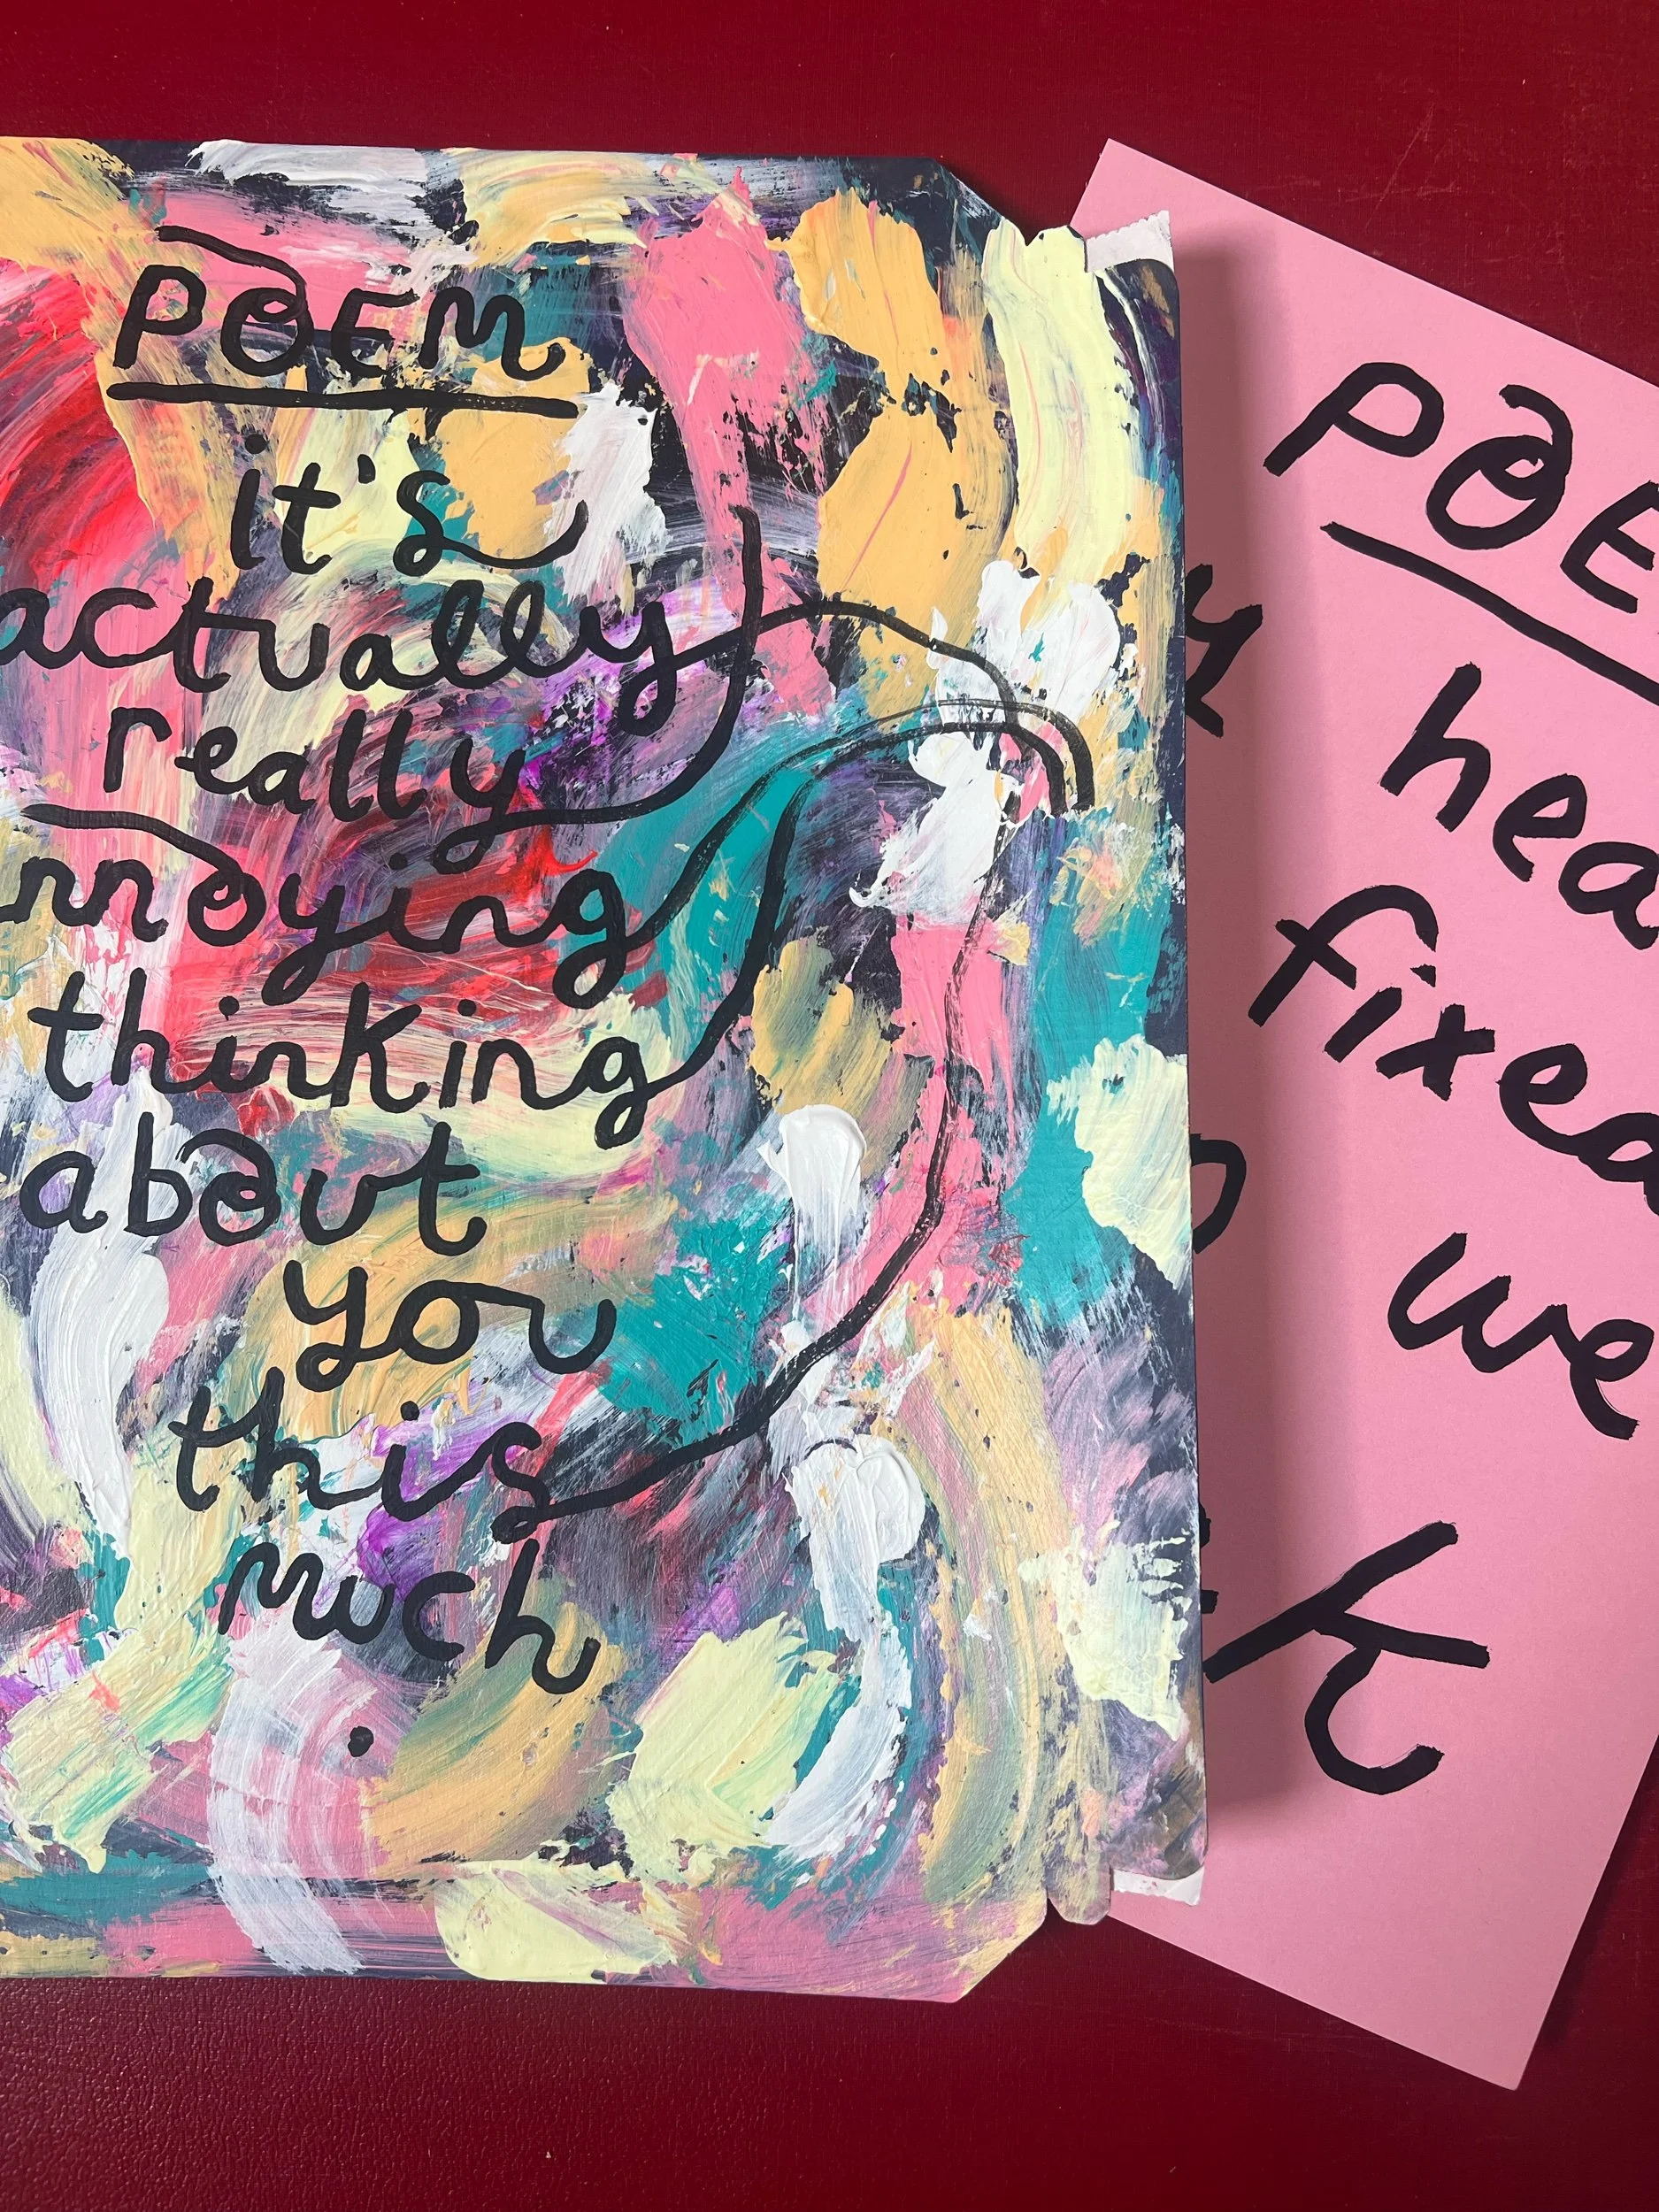 POEM
it's
actually
really
nnoying
thinking
about
you
this
much
.
POE
hea
fixed
we
k